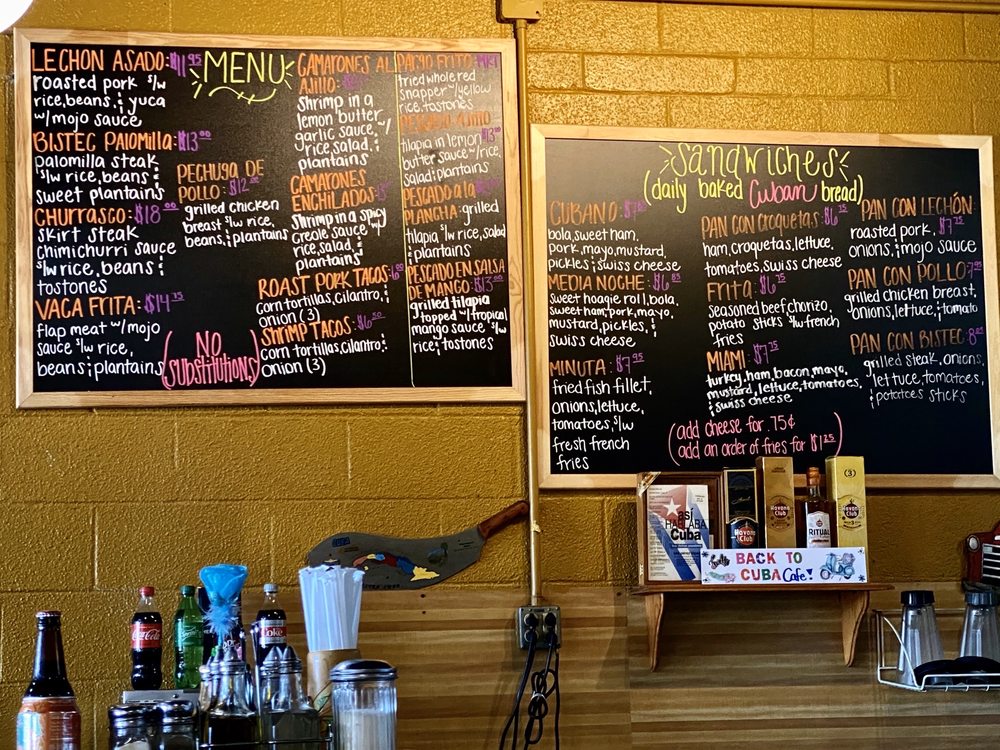 MENU
LECHON ASADO: $11.95
roasted pork s/w
rice, beans, & yuca
w/mojo sauce
BISTEC PALOMILLA: $13.00
palomilla steak
s/w rice, beans &
sweet plantains
CHURRASCO: $18.00
skirt steak
chimichurri sauce
s/w rice, beans &
tostones
VACA FRITA: $14.75
flap meat w/mojo
sauce s/w rice,
beans & plantains
PECHUGA DE
POLLO: $12.00
grilled chicken
breast s/w rice,
beans, & plantains
(NO
substitutions)
CAMARONES AL
AJILLO:
shrimp in a
lemon butter
garlic sauce, w/
rice, salad, &
plantains
CAMARONES
ENCHILADOS:
shrimp in a spicy
creole sauce w/
rice, salad, &
plantains
ROAST PORK TACOS:
corn tortillas, cilantro, &
onion (3)
SHRIMP TACOS: $6.50
corn tortillas, cilantro, &
onion (3)
PARGO FRITO:
fried whole red
snapper w/yellow
rice, tostones
PESCADO AJILLO
tilapia in lemon
butter sauce w/rice,
salad & plantains
PESCADO a la
PLANCHA: grilled
tilapia s/w rice, salad
& plantains
PESCADO EN SALSA
DE MANGO: $13.00
grilled tilapia
topped w/tropical
mango sauce s/w
rice & tostones
Sandwiches
(daily baked Cuban bread)
CUBANO:
bola, sweet ham,
pork, mayo, mustard,
pickles, & swiss cheese
MEDIA NOCHE: $6.85
sweet hoagie roll, bola,
sweet ham, pork, mayo,
mustard, pickles, &
swiss cheese
MINUTA: $7.95
fried fish fillet,
onions, lettuce,
tomatoes, s/w
fresh french
fries
PAN CON CROQUETAS:
ham, croquetas, lettuce,
tomatoes, swiss cheese
Frita:
seasoned beef, chorizo,
potato sticks s/w french
fries
MIAMI:
turkey, ham, bacon, mayo,
mustard, lettuce, tomatoes,
& swiss cheese
PAN CON LECHÓN:
roasted pork,
onions, & mojo sauce
PAN CON POLLO:
grilled chicken breast,
onions, lettuce, & tomato
PAN CON BISTEC:
grilled steak, onions,
lettuce, tomatoes,
& potatoes sticks
(add cheese for 75¢
add an order of fries for $1.25)
así
HABLABA
Cuba
Havana
Club
Havana
Club
RITUAL
(3)
Havana
Club
BACK TO
CUBA Cafe!
Coca-Cola
Sprite
Coke